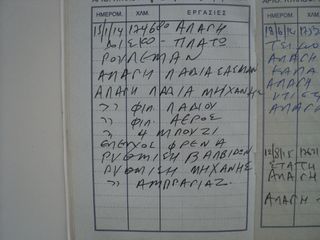 ΗΜΕΡΟΜ. ΧΛΜ. ΕΡΓΑΣΙΕΣ
15/1/14 174680 ΑΛΑΓΗ
ΔΙΣΚΟ - ΠΛΑΤΩ
ΡΟΥΛΕΜΑΝ
ΑΛΑΓΗ ΛΑΔΙΑ ΣΑΣΜΑΝ
ΑΛΑΓΗ ΛΑΔΙΑ ΜΗΧΑΝΗΣ
>> ΦΙΛ. ΛΑΔΙΟΥ
>> ΦΙΛ. ΑΕΡΟΣ
>> 4 ΜΠΟΥΖΙ
ΕΛΕΓΧΟΣ ΦΡΕΝΑ
ΡΥΘΜΙΣΗ ΒΑΛΒΙΔΩΝ
ΡΥΘΜΙΣΗ ΜΗΧΑΝΗΣ
>> ΑΜΠΡΑΓΙΑΖ
ΗΜΕΡΟΜ. ΧΛΜ.
ΑΛΑΓΗ
ΑΛΑΓΗ
ΑΛΑΓΗ